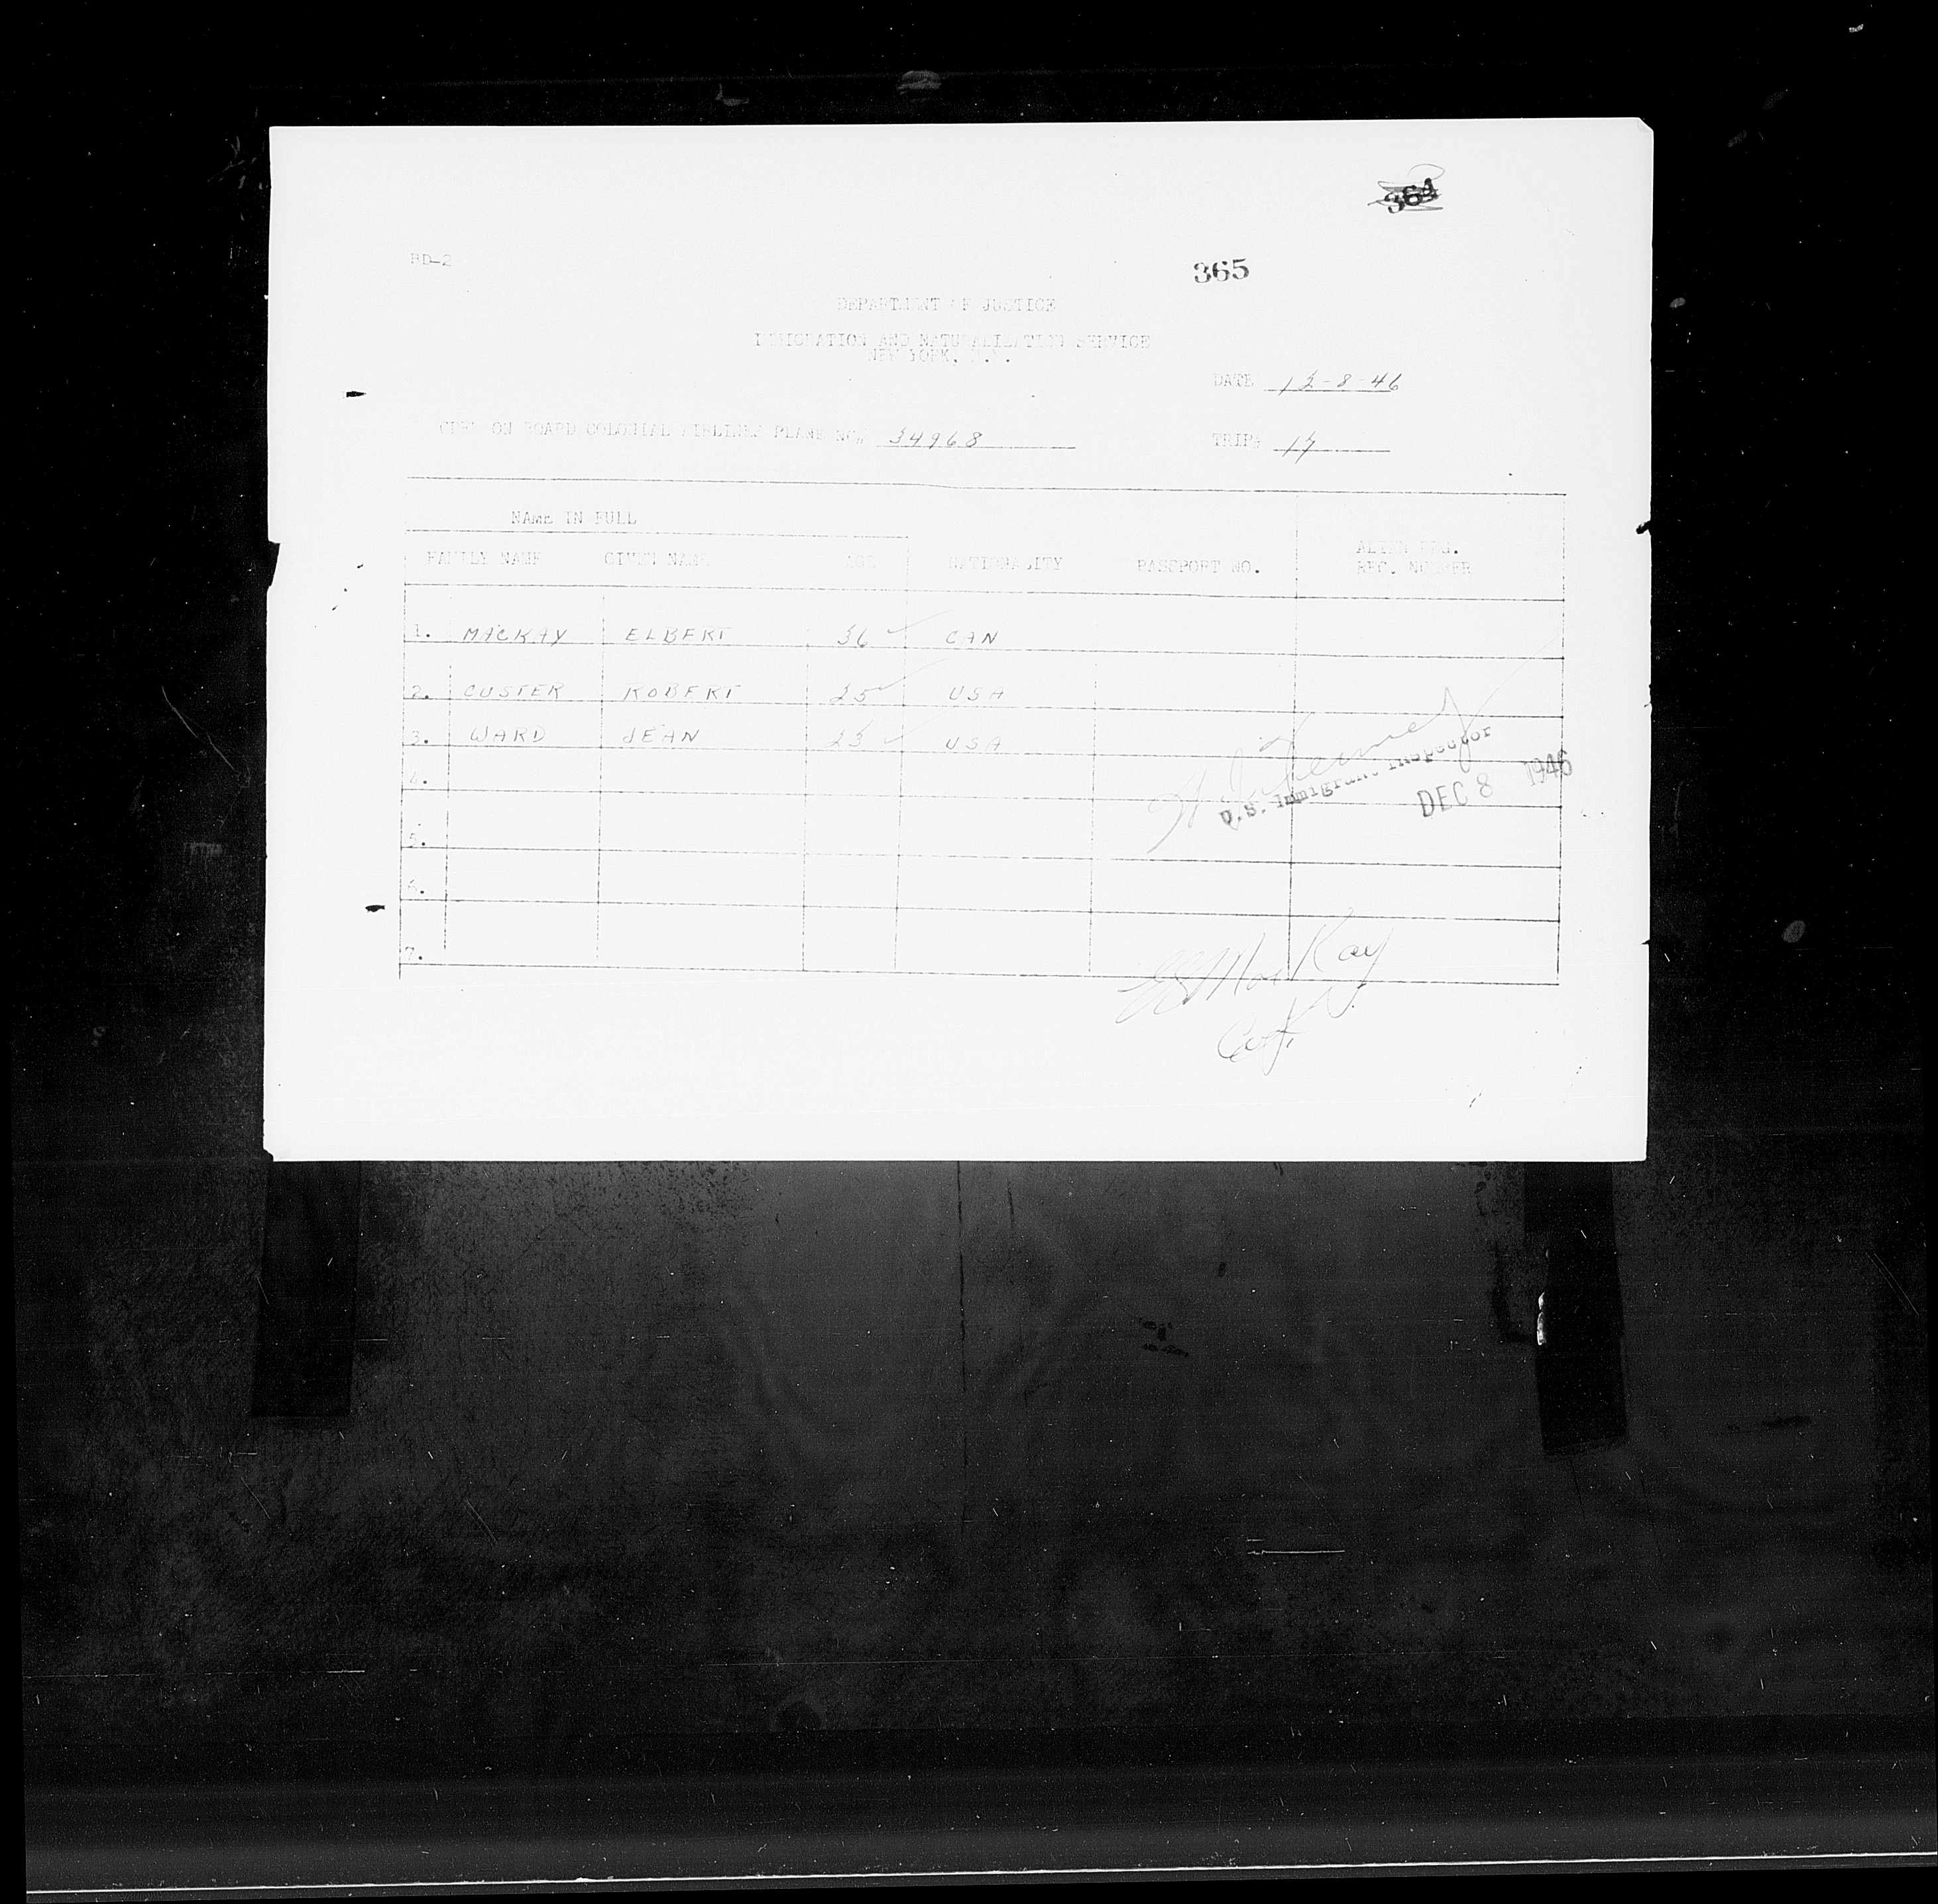 365
BD-2
DEPARTMENT OF JUSTICE
IMMIGRATION AND NATURALIZATION SERVICE
NEW YORK, N.Y.
DATE 12-8-46
CREW ON BOARD COLONIAL AIRLINES PLANE NO. 34968 TRIP#
NAME IN FULL
FAMILY NAME GIVEN NAME AGE NATIONALITY PASSPORT NO. ALIEN REG. REC. NUMBER
1. MACKAY ELBERT 36 CAN
2. CUSTER ROBERT 25 USA
3. WARD JEAN 25 USA
4.
U.S. Immigrant Inspector
DEC 8 1946
5.
6.
7.
MacKay